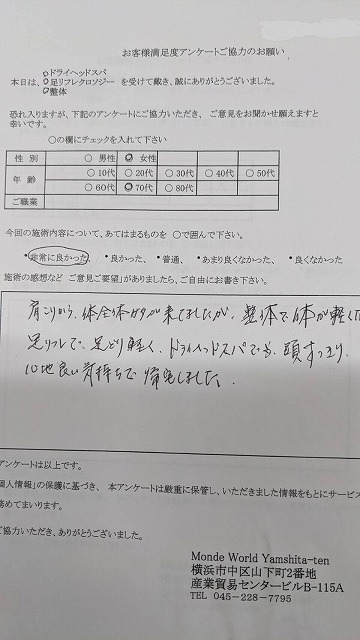 お客様満足度アンケートご協力のお願い
○ドライヘッドスパ
本日は、○足リフレクロソジー を受けて戴き、誠にありがとうございました。
○整体
恐れ入りますが、下記のアンケートにご協力いただき、ご意見をお聞かせ願えますと
幸いです。
○の欄にチェックを入れて下さい
性 別 ○ 男性 ○ 女性
年 齢 ○ 10代 ○ 20代 ○ 30代 ○ 40代 ○ 50代
○ 60代 ○ 70代 ○ 80代
ご職業
今回の施術内容について、あてはまるものを ○で囲んで下さい。
・非常に良かった、 ・良かった、 ・普通、 ・あまり良くなかった、 ・良くなかった
施術の感想など ご意見ご要望」がありましたら、ご自由にお書き下さい。
肩こりから、体全体が来てましたが、整体で体が軽く
足リフレで、足どり軽く、ドライヘッドスパでも、頭すっきり
心地良い気持ちで帰宅しました。
アンケートは以上です。
個人情報」の保護に基づき、本アンケートは厳重に保管し、いただきました情報をもとにサービス
務めてまいります。
ご協力いただき、ありがとうございました。
Monde World Yamshita-ten
横浜市中区山下町2番地
産業貿易センタービルB-115A
TEL 045-228-7795